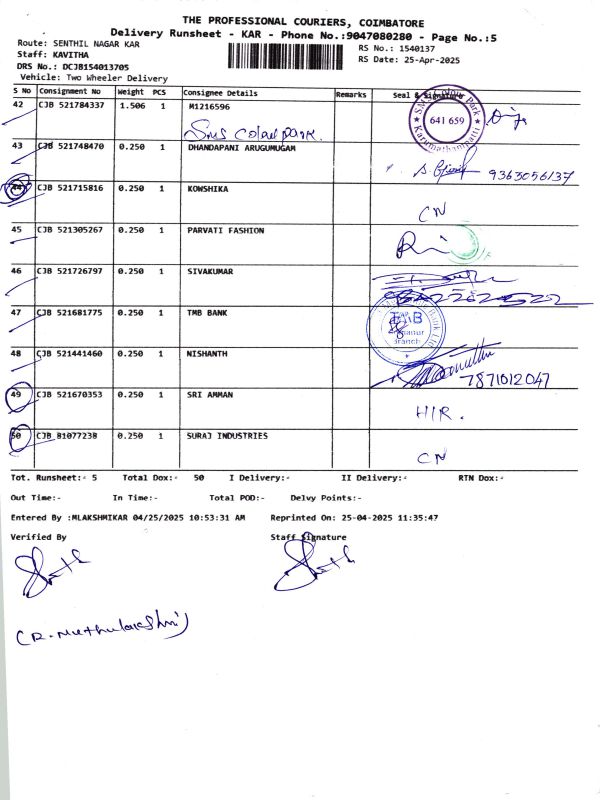 THE PROFESSIONAL COURIERS, COIMBATORE
Delivery Runsheet - KAR - Phone No.:9047080280 - Page No.:5
Route: SENTHIL NAGAR KAR
RS No.: 1540137
Staff: KAVITHA
RS Date: 25-Apr-2025
DRS No.: DCJB154013705
Vehicle: Two Wheeler Delivery
S No Consignment No Weight PCS Consignee Details Remarks Seal & Signature
42 CJB 521784337 1.506 1 M1216596
Sms Colour park.
641 659
43 CJB 521748470 0.250 1 DHANDAPANI ARUGUMUGAM
9363056137
44 CJB 521715816 0.250 1 KOWSHIKA
CN
45 CJB 521305267 0.250 1 PARVATI FASHION
46 CJB 521726797 0.250 1 SIVAKUMAR
47 CJB 521681775 0.250 1 TMB BANK
TMB
Branch
48 CJB 521441460 0.250 1 NISHANTH
7871012047
49 CJB 521670353 0.250 1 SRI AMMAN
HIR.
50 CJB 81077238 0.250 1 SURAJ INDUSTRIES
CN
Tot. Runsheet:- 5 Total Dox:- 50 I Delivery:- II Delivery:- RTN Dox:-
Out Time:- In Time:- Total POD:- Delvy Points:-
Entered By :MLAKSHMIKAR 04/25/2025 10:53:31 AM Reprinted On: 25-04-2025 11:35:47
Verified By Staff Signature
(R. Muthulakshmi)